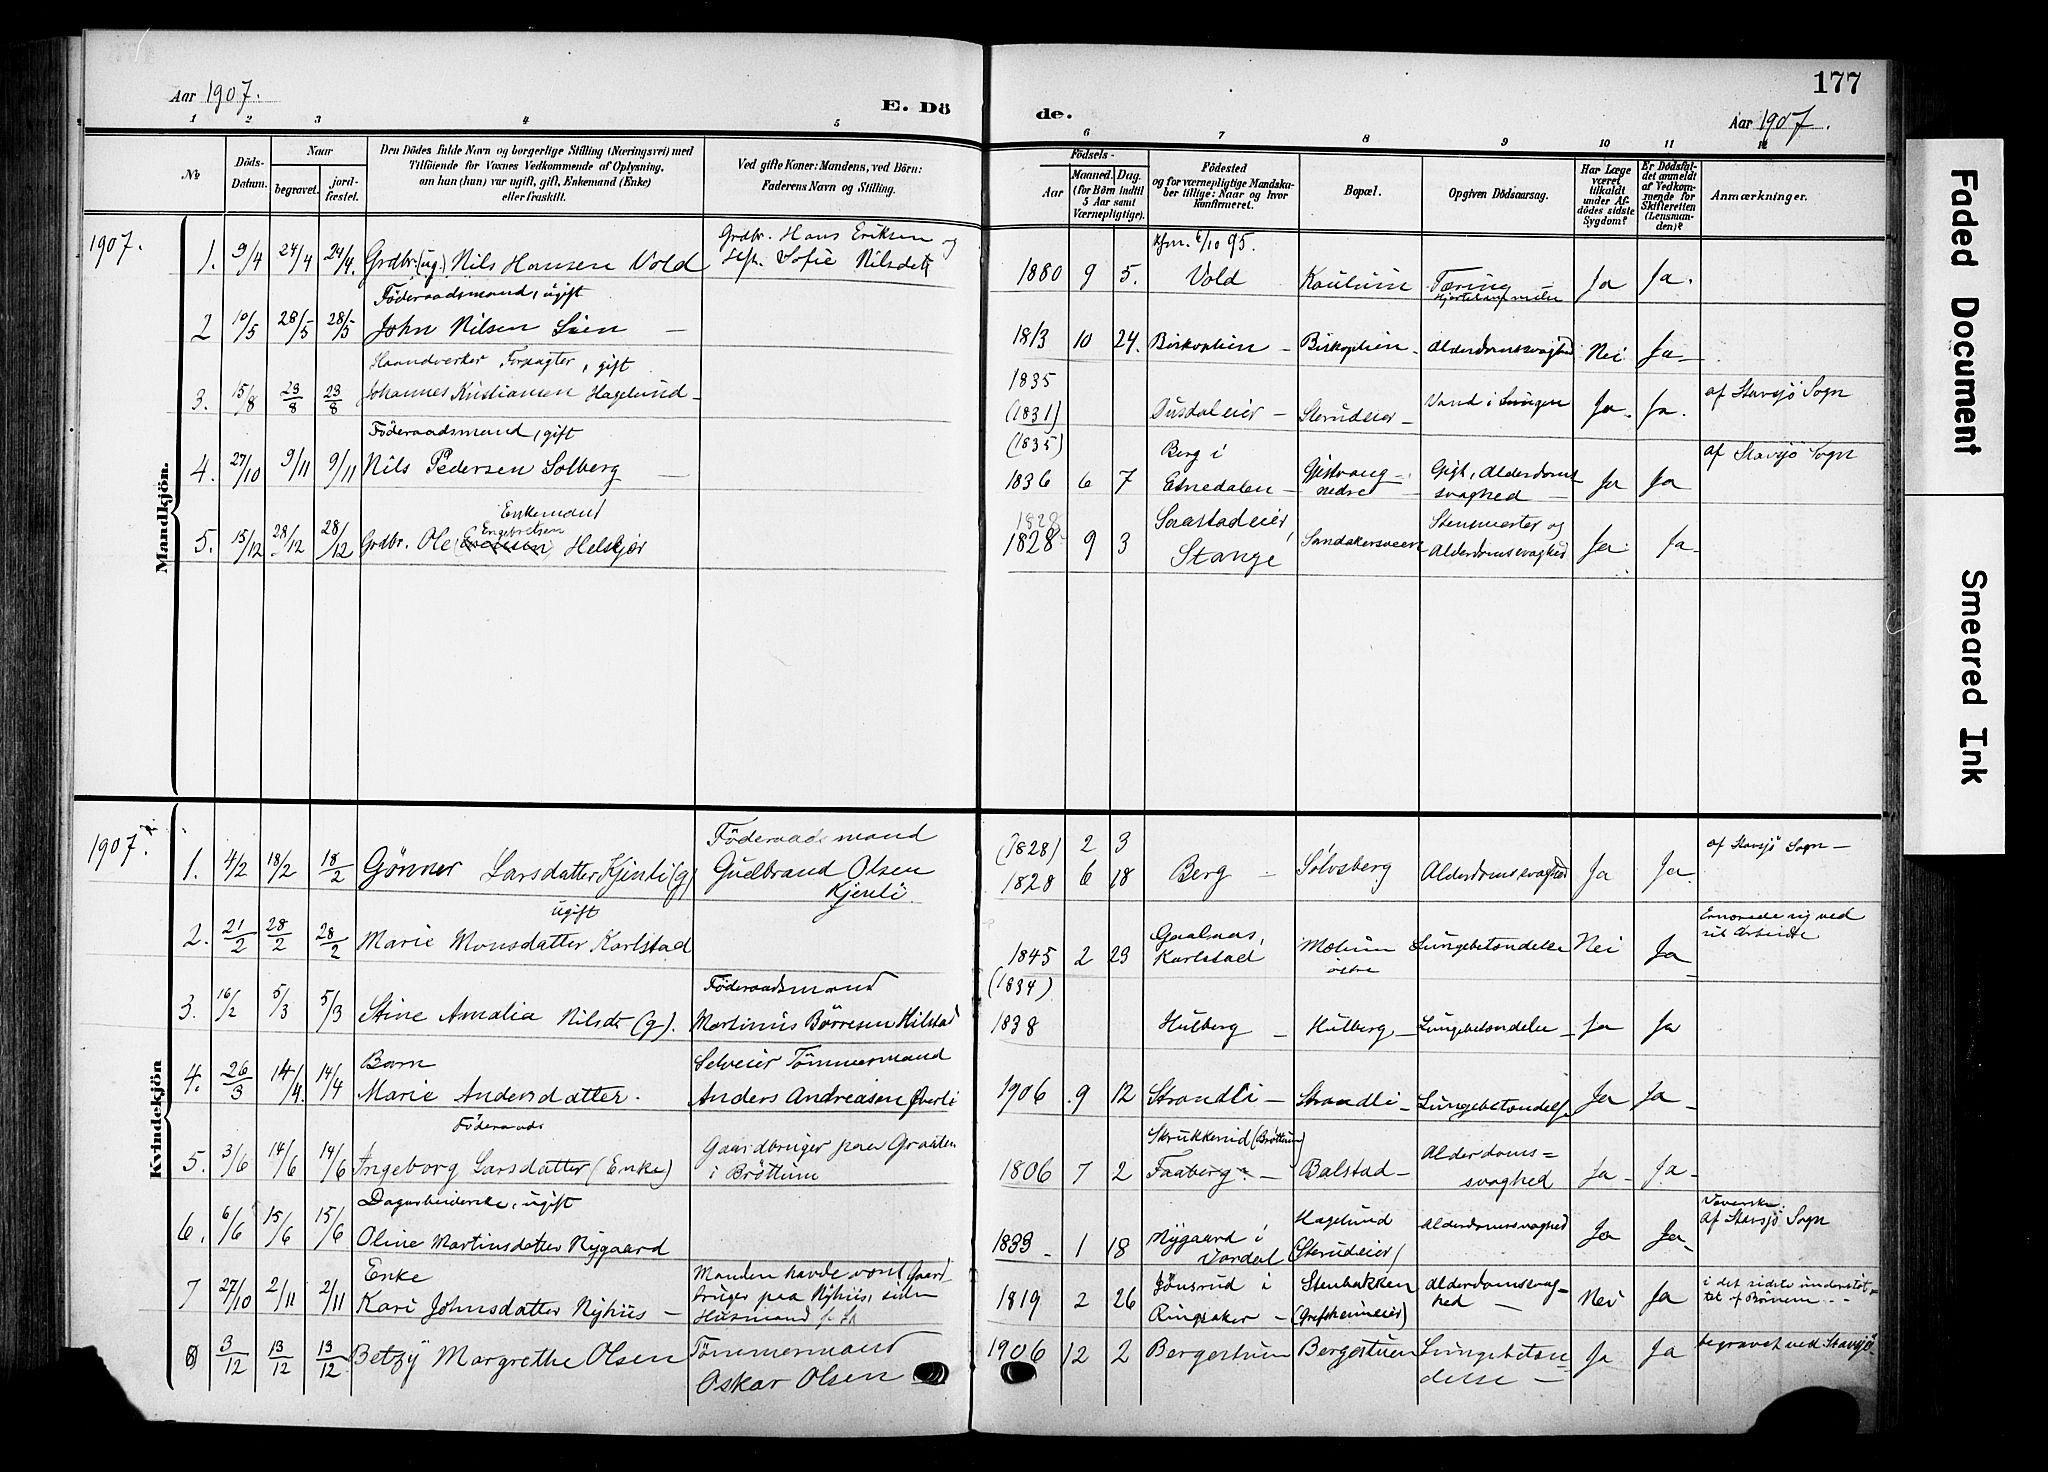 Aar 1907.
E. Dö
de.
177
Aar 1907.
1 2 3 4 5 6 7 8 9 10 11 12
No
Döds-Datum.
Naar
begravet.
jordfæstet.
Den Dödes fulde Navn og borgerlige Stilling (Næringsvei) med
Tilföiende for Voxnes Vedkommende af Oplysning,
om han (hun) var ugift, gift, Enkemand (Enke)
eller fraskilt.
Ved gifte Koner: Mandens, ved Börn:
Faderens Navn og Stilling.
Födsels-
Aar
Maaned. Dag.
(for Börn indtil
5 Aar samt
Værnepligtige).
Födested
og for værnepligtige Mandska-
ber tillige: Naar og hvor
konfirmeret.
Bopæl.
Opgiven Dödsaarsag.
Har Læge
været
tilkaldt
under Af-
dödes sidste
Sygdom?
Er Dödsfal-
det anmeldt
af Vedkom-
mende for
Skifteretten
(Lensman-
den)?
Anmærkninger.
Mandkjön.
1907.
1. 9/4 24/4 24/4. Grdbr. (ug.) Nils Hansen Vold
Grdbr. Hans Eriksen og
Sofie Nilsdatt
1880 9 5. Kfm. 6/10 95. Vold Tæring Ja Ja.
2 10/5 28/5 28/5 Föderaadsmand, ugift
John Nilsen Lien —
1813 10 24. Biskoplien — Biskoplien — Alderdomssvaghed Nei Ja —
3. 15/8 23/8 23/8 Haandverker Forpagter, gift
Johannes Kristiansen Hagelund —
1835
(1831) Dusdaleier — Sterudeier — Vand i Lungen Ja — Ja. af Stavsjö Sogn
4. 27/10 9/11 9/11 Föderaadsmand, gift
Nils Pedersen Solberg —
(1835)
1836 6 7 Berg i
Etnedalen — nedre — Gigt, Alderdoms
svaghed — Ja Ja af Stavsjö Sogn
5. 15/12 28/12 28/12 Enkemand
Engebretsen
Grdbr. Ole Helskjør
1828
1828 9 3 Saastadeier,
Stange Sandakersveen Alderdomssvaghed Ja Ja —
Kvindekjön
1907.
1. 4/2 18/2 18/2 Gönner Larsdatter Kjenli (g)
Föderaadsmand
Gudbrand Olsen
Kjenli
(1828) 2 3
1828 6 18 Berg — Sølvsberg Alderdomssvaghed Ja Ja. af Stavsjö Sogn —
2. 21/2 28/2 28/2 ugift
Marie Monsdatter Karlstad
1845 2 23 Gaalaas,
Karlstad Moelum
østre Lungebetændelse Nei Ja — Ernærede sig ved
sit Arbeide
3. 16/2 5/3 5/3 Stine Amalia Nilsdt (g).
Föderaadsmand
Martinus Börresen Hilstad
(1834)
1838 Hulberg — Hulberg — Lungebetændelse — Ja Ja
4. 26/3 14/4. 14/4 Barn
Marie Andersdatter.
Selveier Tömmermand
Anders Andreasen Øverli
1906 9 12 Strandli — Strandli — Lungebetændelse Ja Ja —
5. 3/6 14/6 14/6 Föderaads
Ingeborg Larsdatter (Enke)
Gaardbruger paa
i Brøttum
1806 7 2 Skrukkerud (Bröttum)
Faaberg — Balstad — Alderdoms=
svaghed Ja — Ja —
6. 6/6 15/6 15/6 Dagarbeiderske, ugift
Oline Martinsdatter Nygaard
1833 — 1 18 Nygaard i
Vardal Hagelund
(Sterudeier) Alderdomssvaghed Ja Ja — Væverske.
Af Stavsjö Sogn
7 27/10 2/11 2/11 Enke
Kari Johnsdatter Nyhus —
Manden havde været Gaard
bruger paa Nyhus, siden
Husmand
1819 2 26 Jönsrud i
Ringsaker — Stenbakken
(Grefsheimeier) Alderdomssvag-
hed — Nei Ja i det sidste understöt-
tet af Börnene —
8 3/12 13/12 13/12. Betzy Margrethe Olsen
Tömmermand
Oskar Olsen
1906 12 2 Bergestuen Bergestuen Lungebetæn=
delse — Ja Ja begravet ved Stavsjö
Faded Document
Smeared Ink